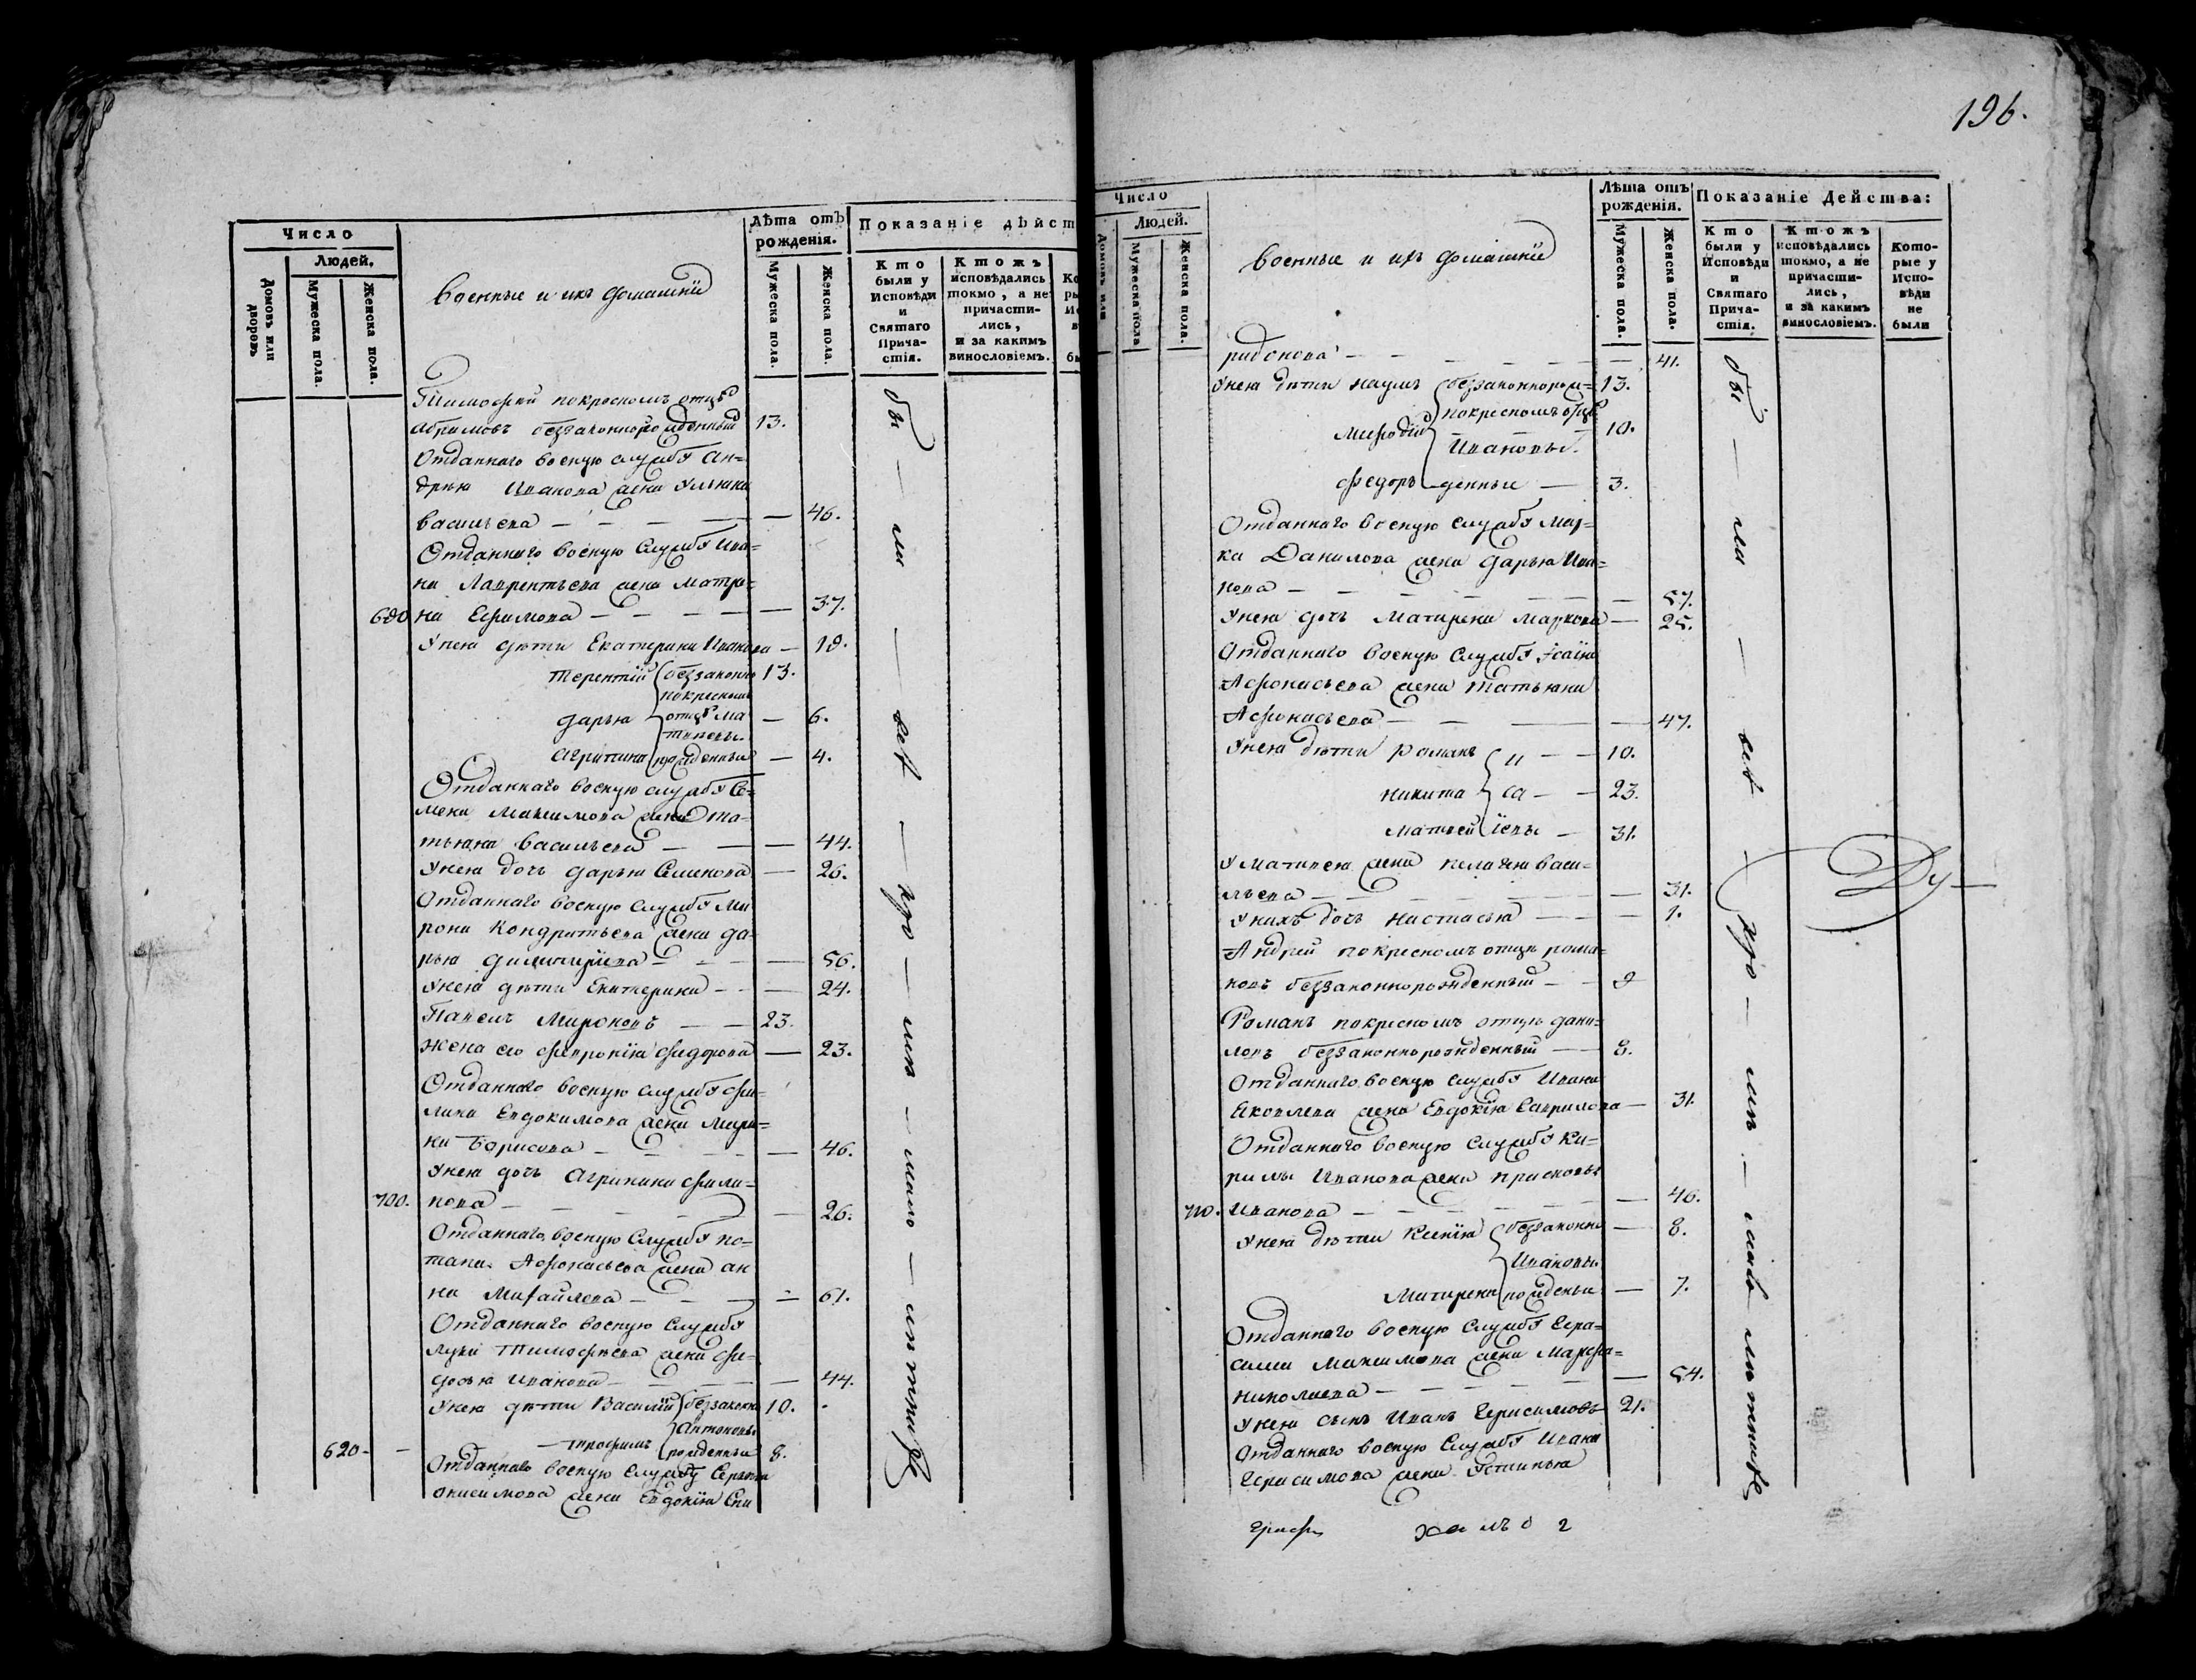 Число
Людей,
Домовъ или дворовъ
Мужеска пола.
Женска пола.
Военные и ихъ домашнїи
Лѣта отъ
рожденія.
Мужеска пола.
Женска пола.
Показаніе дѣйст
Кто
были у
Исповѣди
и
Святаго
Прича-
стія.
Ктожъ
исповѣдались
токмо, а не
причасти-
лись,
и за какимъ
винословіемъ.
Тимофѣй покресномъ отцѣ
абрамовъ беззаконнорожденный 13.
Отданнаго военую службу Ан-
дрѣя Иванова жена Ульяна
васильева — — — — 46.
Отданнаго военую Службу Ива-
на Лаврентьева жена матре-
680 на Ефимова — — — — 37.
Унея дѣти Екатерина Иванова — 19.
терентїй беззаконно 13.
покресном
дарья отцѣ Ма — 6.
твѣевы
агрипина рожденныи — 4.
Отданнаго военую службу Се-
мена Максимова жена та-
тьяна васильева — — — 44.
Унея дочь дарья Семенова — 26.
Отданнаго военую Службу Ми
рона Кондратьева жена да-
рья димитріева — — — 56.
Унея дѣти Екатерина — — 24.
Павелъ Мироновъ — — 23.
жена ево Феврониїя Федорова — 23.
Отданнаго военую службу Фи-
липа Евдокимова жена Мари-
на Борисова — — — — 46.
Унея дочь Агрипина Фили-
700. пова — — — — 26.
Отданнаго военую Службу По-
тапа Афонасьева жена ан
на Михайлева — — — 61.
Отданнаго военую Службу
луки Тимофѣева жена Фе-
досья Иванова — — — 44.
Унея дѣти Василїй беззаконно 10.
Антоновы
620 — — трофимъ рожденныи 8.
Отданнаго военую Службу Сергѣя
онисимова жена Евдокїя Спи
бы — ли — всѣ — про — шло — мало — лѣтнихъ
196.
Число
Людей.
Домовъ или
Мужеска пола
Женска пола.
Военные и ихъ домашнїи
Лѣта отъ
рожденія.
Мужеска пола.
Женска пола.
Показаніе Действа:
Кто
были у
Исповѣди
и
Святаго
Прича-
стія.
Ктожъ
исповѣдались
токмо, а не
причасти-
лись,
и за какимъ
винословіемъ.
Кото-
рые у
Испо-
вѣди
не
были
ридонова — — — — — — 41.
Унея дѣти наумъ беззаконнорож- 13.
покресномъ отцѣ
Мефодїй 10.
Ивановы
Федоръ денные — 3.
Отданнаго военую Службу Мар-
ка Данилова жена дарья Ива-
нова — — — — — 57.
Унея дочь Матирена Маркова — 25.
Отданнаго военую Службу Исаїя
Афонасьева жена Татьяна
Афонасьева — — — — 47.
Унея дѣти романъ И — — 10.
никита са — — 23.
Матвей їевы — 31.
У мативея жена пелагея васи-
льева — — — — — 31.
Унихъ дочь настасья — — — 1.
Андрей покресномъ отцѣ рома-
новъ беззаконнорожденный — — 9
Романъ покресномъ отцѣ дани-
ловъ беззаконнорожденный — — 8.
Отданнаго военую Службу Ивана
Яковлева жена Евдокїя Гаврилова — 31.
Отданнаго военую Службу Ки-
рилы Иванова жена прасковья
710. Иванова — — — — — — 46.
Унея дѣти Ксенїя беззаконно — 8.
Ивановы
Матирена рожденыи — 7.
Отданнаго военую Службу Гера-
сима Максимова жена Марфа-
николаева — — — — — 54.
Унея сынъ Иванъ Герасимовъ 21.
Отданнаго военую Службу Ивана
Герасимова жена Устинья
бы — ли — всѣ — про — шлъ — мало лѣтнихъ
Ду—